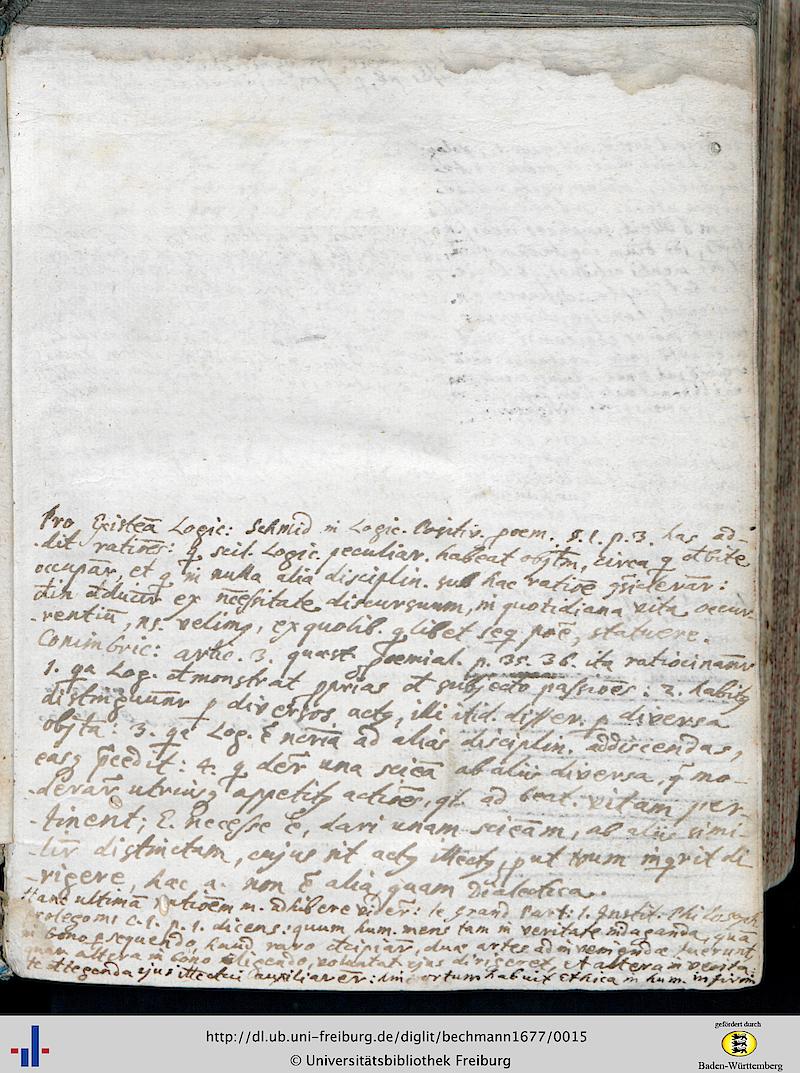 Pro Existēa Logic: Schmid in Logic. Positiv. poem. §. 1. p. 3. has ad-
-dit ratioēs: q̄ scil. Logic. peculiar. habeat objtm, circa q̄
occupar, et q̄ in nulla alia disciplin. sub hac ratioē
ex necessitate discursuum, in quotidiana vita occur-
-rentiū, ex quolib. qlibet seq. poē, statuere.
Conimbric: artic. 3. quaest. proemial. p. 35. 36. ita ratiocinanr
1. qa Log. dmonstrat pprias d subjecto passioēs: 2. habity
distinguunr p diversos acty, illi itid. differ. p diversa
objta: 3. qa Log. ē neria ad alias disciplin. addiscendas,
easq pcedit: 4. q der una sciēa ab aliis diversa, q mo-
-derar utriusq appetity actioēs, qt. ad beat. vitam per-
-tinent; E. necesse ē, dari unam sciēam, ab aliis simi-
-lir distinctam, cujus sit acty illecty, put verum inqrit di-
-rigere, hac a. non ē alia quam Dialectica.
Hanc ultimā ratioēm m. adhibere vider: le Grand Part: 1. Instit. Philosoph.
prolegom: c. 1. p. 1. dicens: quum hum. mens tam in veritate indaganda, quā
in bono psequendo, haud raro decipiar, duae artes adinveniendae fuerunt,
quar altera in bono eligendo, voluntat ejus dirigeret, et altera in verita-
-te dtegenda ejus illectui auxiliarer: Un. ortum habuit Ethica in hum. infirm
http://dl.ub.uni-freiburg.de/diglit/bechmann1677/0015
© Universitätsbibliothek Freiburg
gefördert durch
Baden-Württemberg